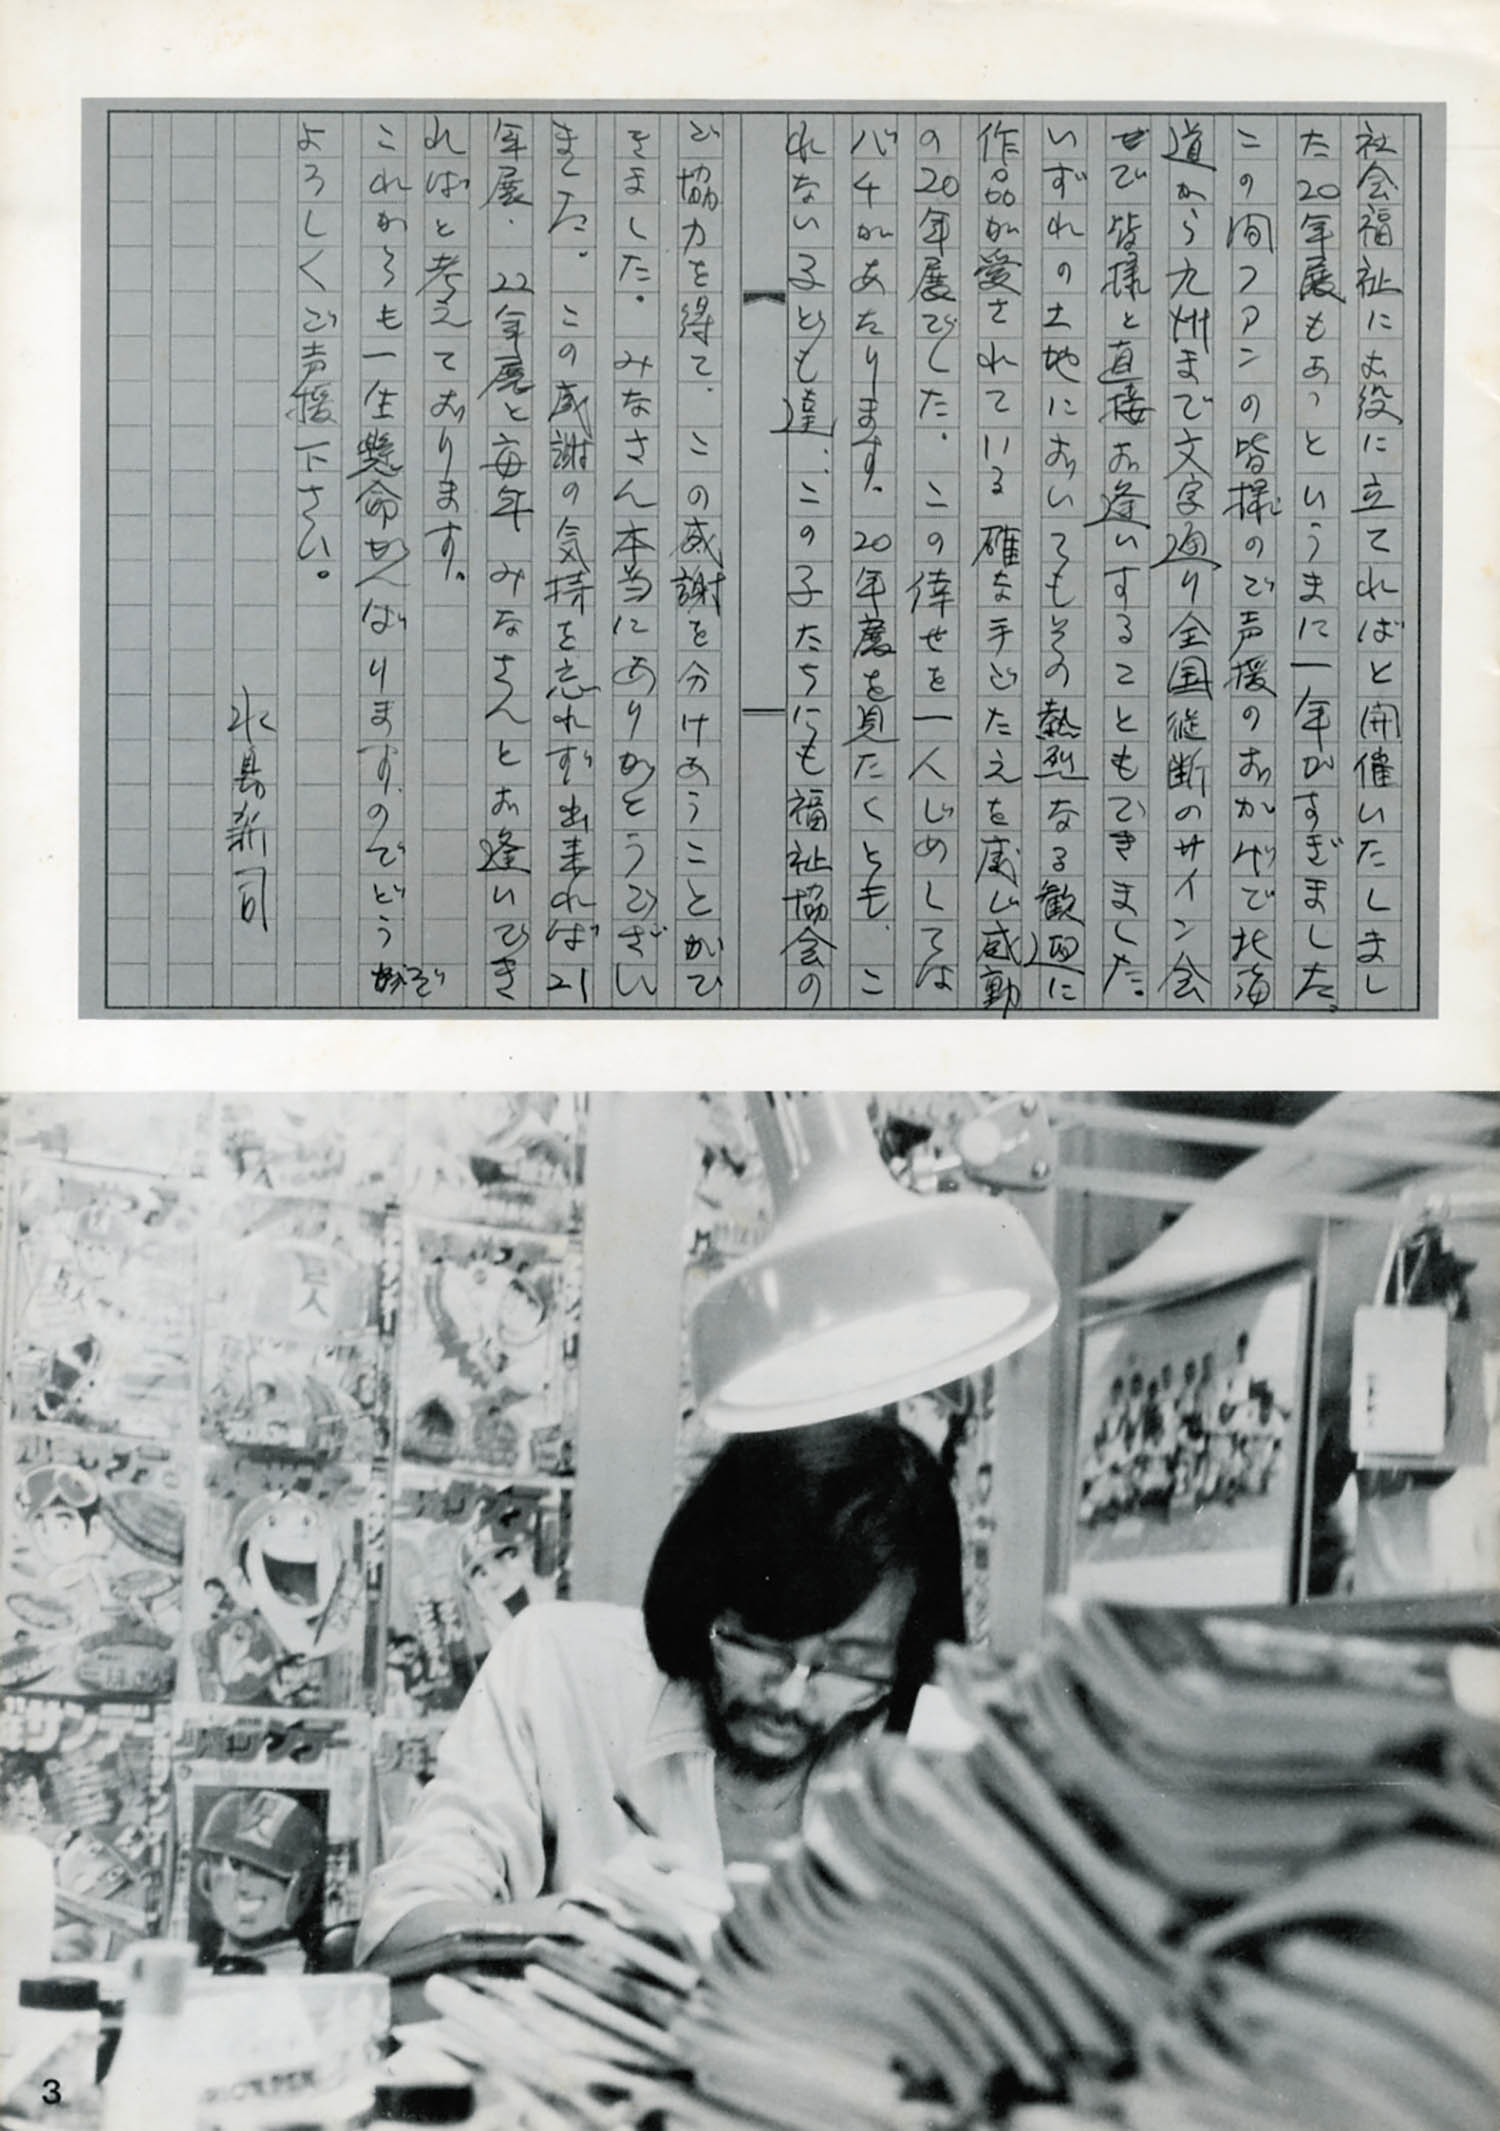 社会福祉にお役に立てればと開催いたしまし
た20年展もあっというまに一年がすぎました。
この間ファンの皆様のご声援のおかげで北海
道から九州まで文字通り全国縦断のサイン会
ぜで皆様と直接お逢いすることもできました。
いずれの土地においてもその熱烈なる歓迎に
作品が愛されている確な手ごたえを感じ感動
の20年展でした。この倖せを一人じめしては
バチがあたります。20年展を見たくとも、こ
れない子ども達…この子たちにも福祉協会の
ご協力を得て、この感謝を分けあうことがで
きました。みなさん本当にありがとうござい
ました。この感謝の気持を忘れず出来れば21
年展、22年展と毎年みなさんとお逢いでき
ればと考えております。
これからも一生懸命がんばりますのでどうぞ
よろしくご声援下さい。
水島新司
少年サンデー
3